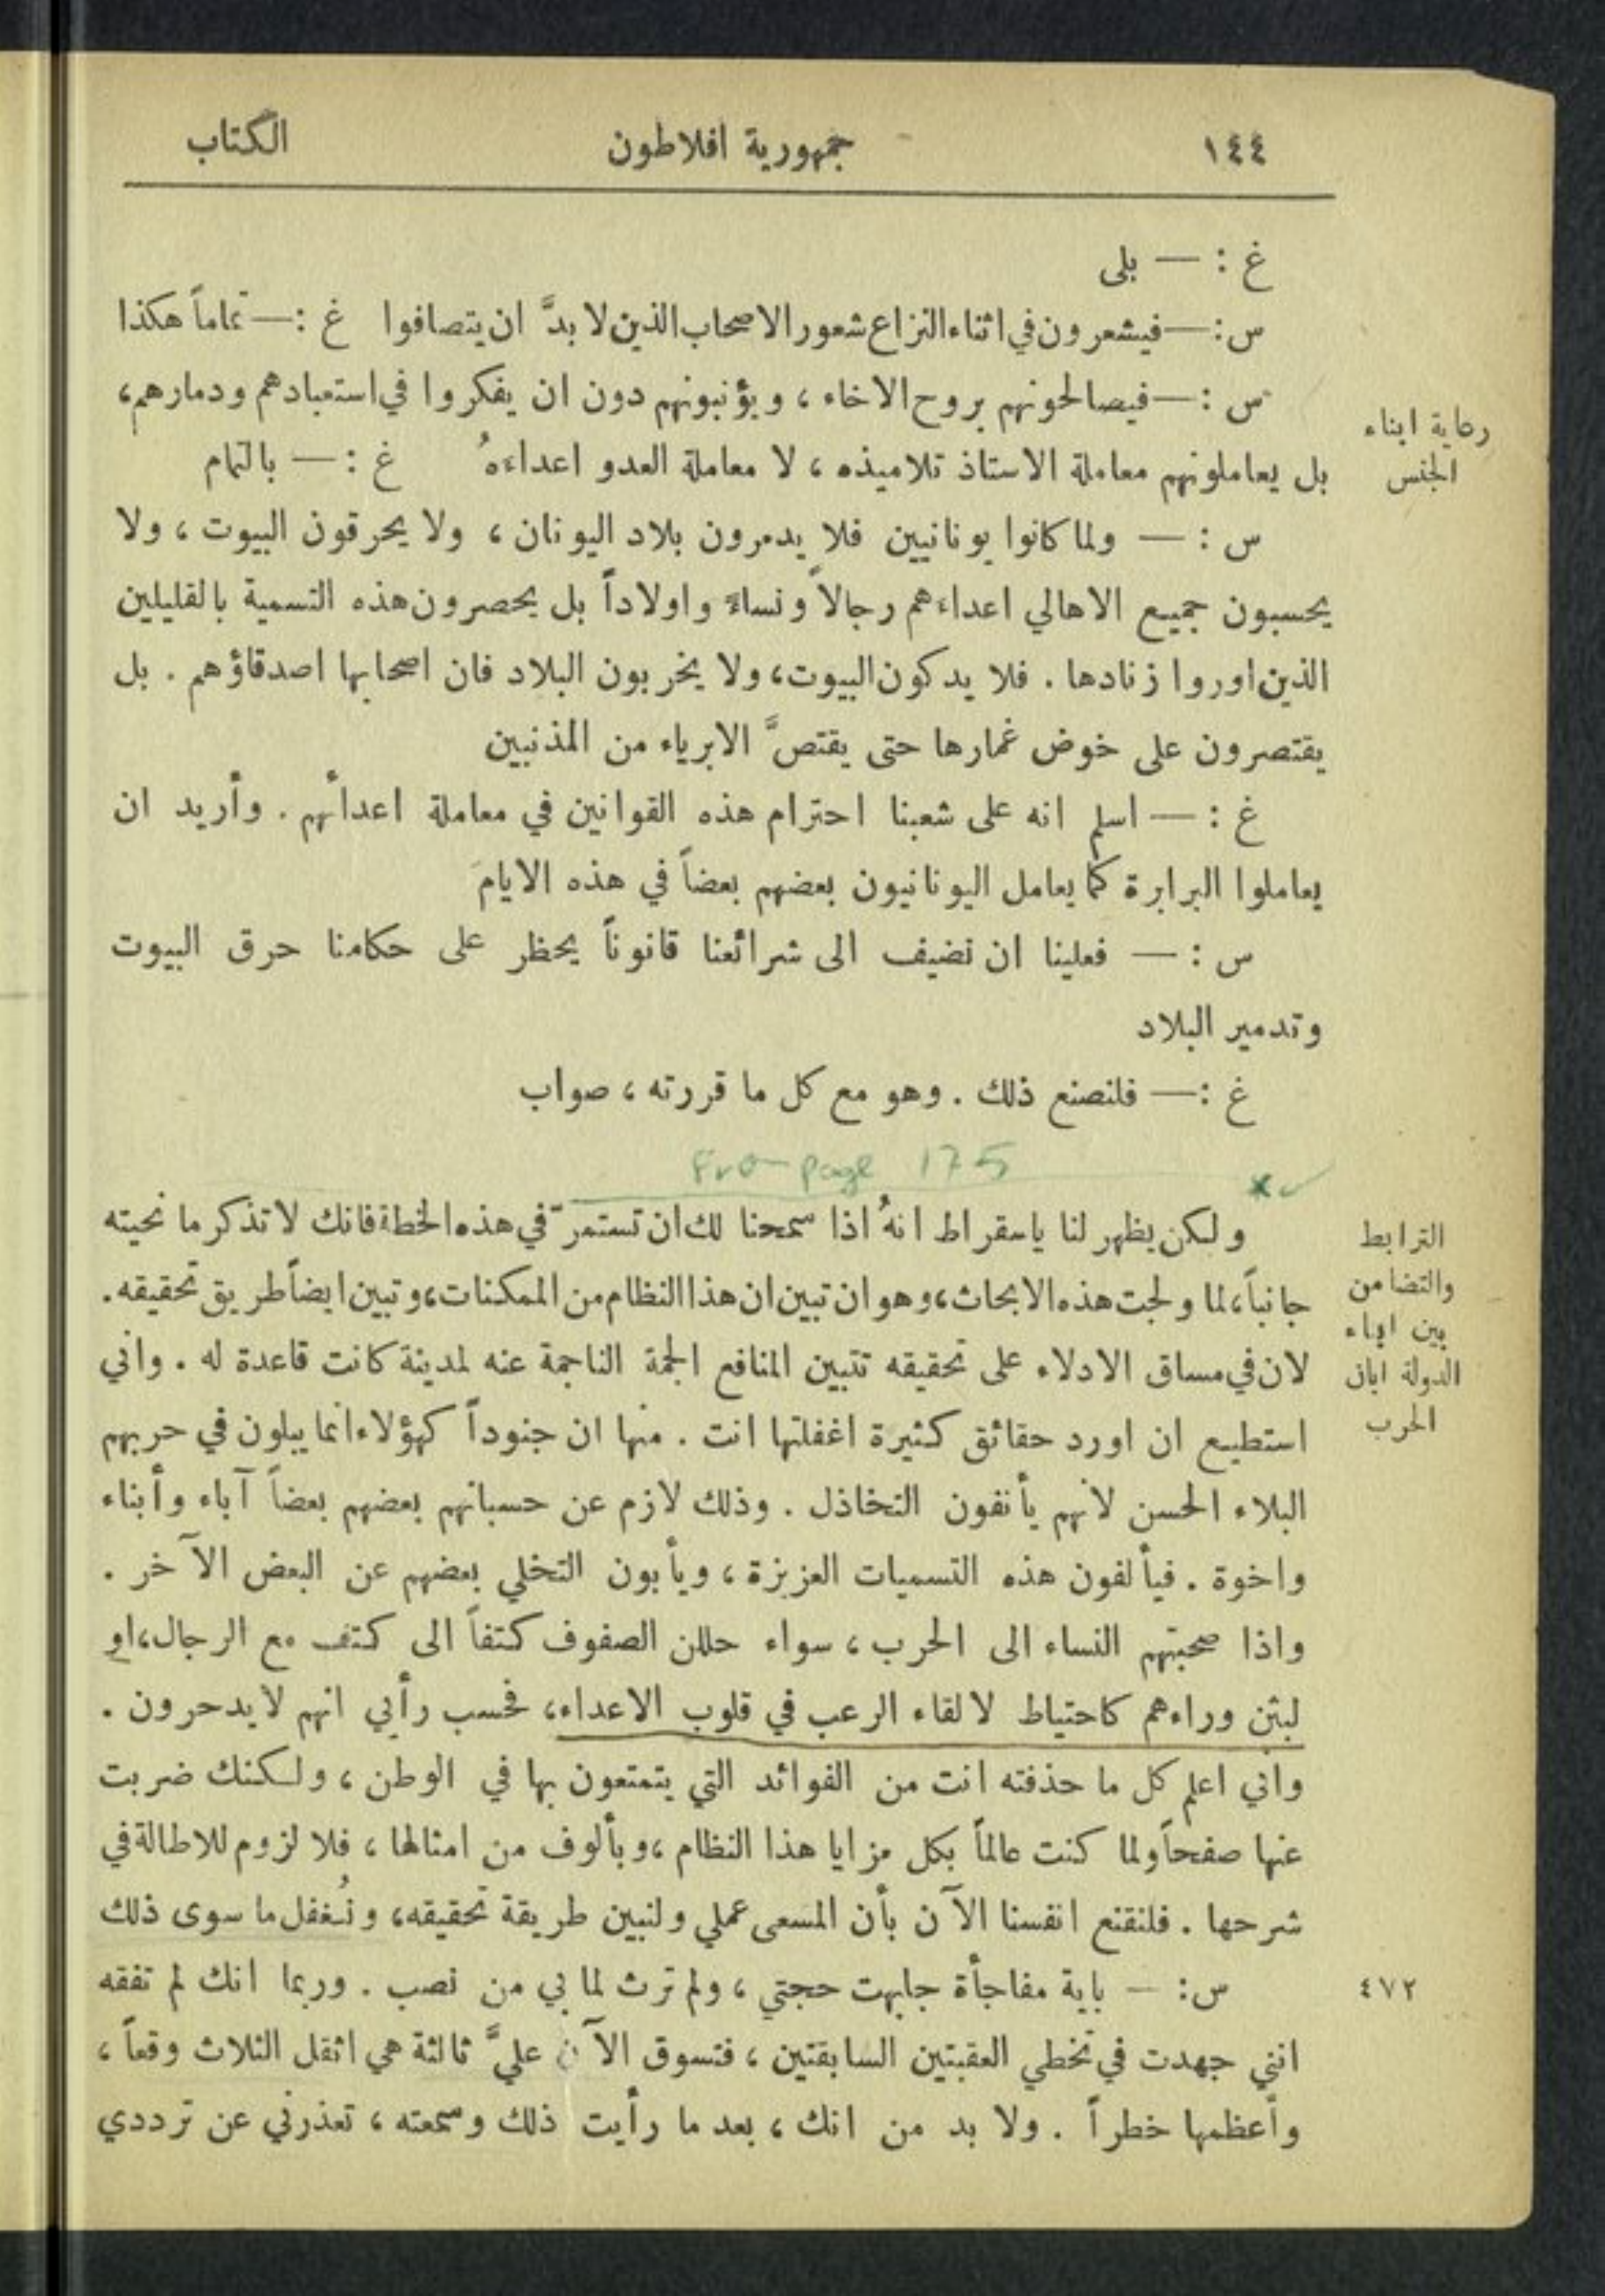 ١٤٤ جمهورية افلاطون الكتاب
غ : — بلى
س : — فيشعرون في اثناء النزاع شعور الاصحاب الذين لا بدَّ ان يتصافوا غ : — تماماً هكذا
س : — فيصالحونهم بروح الاخاء ، ويؤنبونهم دون ان يفكروا في استعبادهم ودمارهم ،
بل يعاملونهم معاملة الاستاذ تلاميذه ، لا معاملة العدو اعداءهُ غ : — بالتمام
رعاية ابناء
الجنس
س : — ولما كانوا يونانيين فلا يدمرون بلاد اليونان ، ولا يحرقون البيوت ، ولا
يحسبون جميع الاهالي اعداءهم رجالاً ونساءً واولاداً بل يحصرون هذه التسمية بالقليلين
الذين اوروا زنادها . فلا يدكون البيوت ، ولا يخربون البلاد فان اصحابها اصدقاؤهم . بل
يقتصرون على خوض غمارها حتى يقتصَّ الابرياء من المذنبين
غ : — اسلم انه على شعبنا احترام هذه القوانين في معاملة اعدائهم . وأريد ان
يعاملوا البرابرة كما يعامل اليونانيون بعضهم بعضاً في هذه الايام
س : — فعلينا ان نضيف الى شرائعنا قانوناً يحظر على حكامنا حرق البيوت
وتدمير البلاد
غ : — فلنصنع ذلك . وهو مع كل ما قررته ، صواب
From page 175
ولكن يظهر لنا ياسقراط انهُ اذا سمحنا لك ان تستمرّ في هذه الخطة فانك لا تذكر ما نحيته
جانباً ، لما ولجت هذه الابحاث ، وهو ان تبين ان هذا النظام من الممكنات ، وتبين ايضاً طريق تحقيقه .
لان في مساق الادلاء على تحقيقه تتبين المنافع الجمة الناجمة عنه لمدينة كانت قاعدة له . واني
استطيع ان اورد حقائق كثيرة اغفلتها انت . منها ان جنوداً كهؤلاء انما يبلون في حربهم
البلاء الحسن لانهم يأنفون التخاذل . وذلك لازم عن حسبانهم بعضهم بعضاً آباء وأبناء
واخوة . فيألفون هذه التسميات العزيزة ، ويأبون التخلي بعضهم عن البعض الآخر .
واذا صحبتهم النساء الى الحرب ، سواء حللن الصفوف كتفاً الى كتف مع الرجال ، او
لبثن وراءهم كاحتياط لالقاء الرعب في قلوب الاعداء ، فحسب رأيي انهم لا يدحرون .
واني اعلم كل ما حذفته انت من الفوائد التي يتمتعون بها في الوطن ، ولكنك ضربت
عنها صفحاً ولما كنت عالماً بكل مزايا هذا النظام ، وبألوف من امثالها ، فلا لزوم للاطالة في
شرحها . فلنقنع انفسنا الآن بأن المسعى عملي ولنبين طريقة تحقيقه ، ونُغفل ما سوى ذلك
الترابط
والتضامن
بين ابناء
الدولة ابان
الحرب
س : — باية مفاجأة جابهت حجتي ، ولم ترث لما بي من نصب . وربما انك لم تفقه
٤٧٢
انني جهدت في تخطي العقبتين السابقتين ، فتسوق الآن عليَّ ثالثة هي اثقل الثلاث وقعاً ،
وأعظمها خطراً . ولا بد من انك ، بعد ما رأيت ذلك وسمعته ، تعذرني عن ترددي